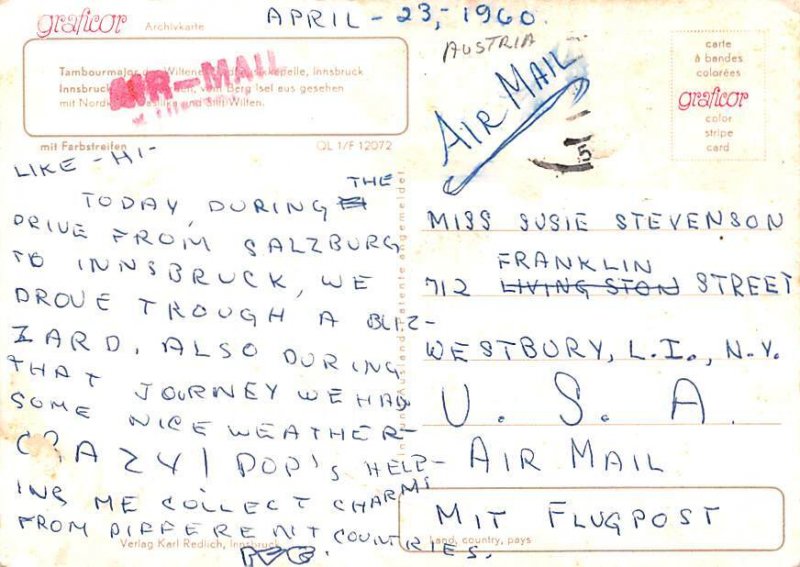 APRIL - 23, - 1960.
AUSTRIA
graficor Archivkarte
Tambourmajor der Wiltener kapelle, Innsbruck
AIR-MAIL
Innsbruck vom Berg Isel aus gesehen
mit Nord und Stift Wilten.
mit Farbstreifen QL 1/F 12072
AIR MAIL
5
carte
à bandes
colorées
graficor
color
stripe
card
LIKE - HI -
TODAY, DURING THE
DRIVE FROM SALZBURG
TO INNSBRUCK, WE
DROVE TROUGH A BLIZ-
ZARD. ALSO DURING
THAT JOURNEY WE HAD
SOME NICE WEATHER -
CRAZY! POP'S HELP-
ING ME COLLECT CHARMS
FROM DIFFERENT COUNTRIES.
PEG.
Verlag Karl Redlich, Innsbruck
Ausland Patente angemeldet
MISS SUSIE STEVENSON
FRANKLIN
712 LIVINGSTON STREET
WESTBURY, L.I., N.Y.
U. S. A.
AIR MAIL
MIT FLUGPOST
Land, country, pays